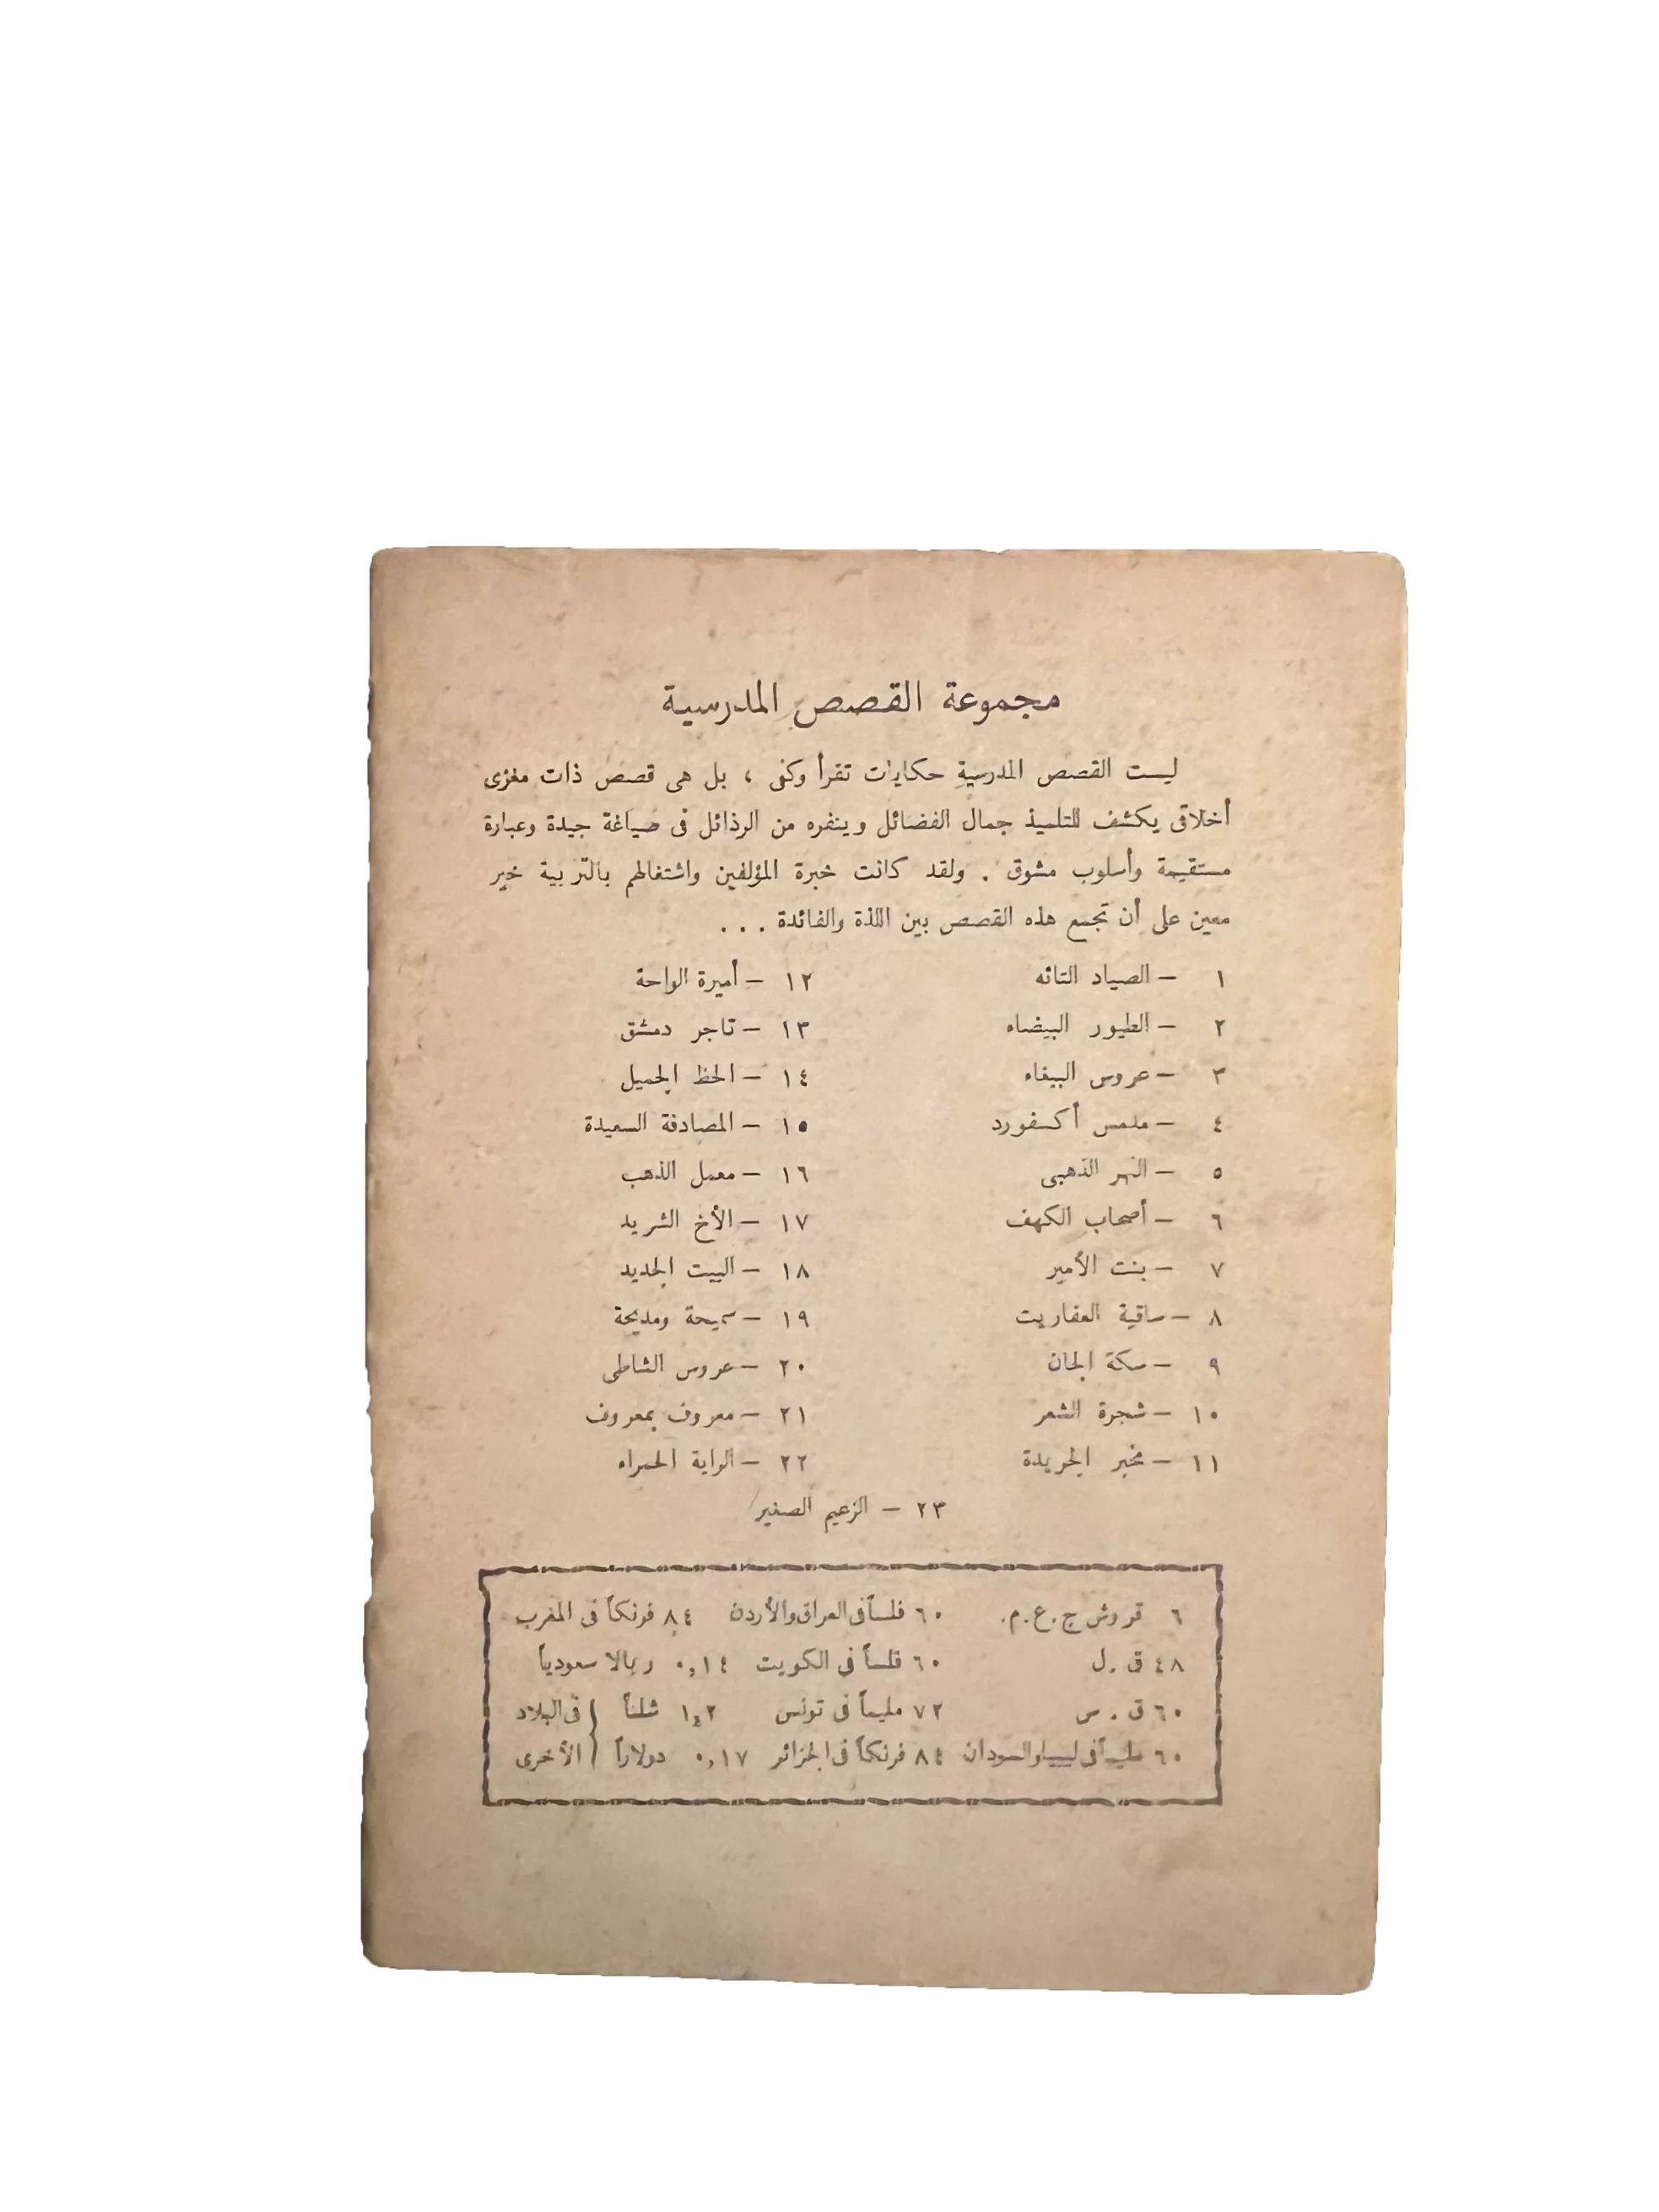 مجموعة القصص المدرسية
ليست القصص المدرسية حكايات تقرأ وكفى ، بل هى قصص ذات مغزى
أخلاقى يكشف للتلميذ جمال الفضائل وينفره من الرذائل فى صياغة جيدة وعبارة
مستقيمة وأسلوب مشوق . ولقد كانت خبرة المؤلفين واشتغالهم بالتربية خير
معين على أن تجمع هذه القصص بين اللذة والفائدة ...
١ – الصياد التائه
٢ – الطيور البيضاء
٣ – عروس الببغاء
٤ – ملمس أكسفورد
٥ – النهر الذهبى
٦ – أصحاب الكهف
٧ – بنت الأمير
٨ – ساقية العفاريت
٩ – سكة الجان
١٠ – شجرة الشعر
١١ – مخبر الجريدة
١٢ – أميرة الواحة
١٣ – تاجر دمشق
١٤ – الحظ الجميل
١٥ – المصادفة السعيدة
١٦ – معمل الذهب
١٧ – الأخ الشريد
١٨ – البيت الجديد
١٩ – سميحة ومديحة
٢٠ – عروس الشاطى
٢١ – معروف بمعروف
٢٢ – الراية الحمراء
٢٣ – الزعيم الصغير
٦ قروش ج.ع.م. ٦٠ فلساً فى العراق والأردن ٨٤ فرنكاً فى المغرب
٤٨ ق.ل ٦٠ فلساً فى الكويت ٠,١٤ ريالا سعودياً
٦٠ ق.س ٧٢ مليماً فى تونس ١,٢ شلناً } فى البلاد
٦٠ مليماً فى ليبيا والسودان ٨٤ فرنكاً فى الجزائر ٠,١٧ دولاراً } الأخرى